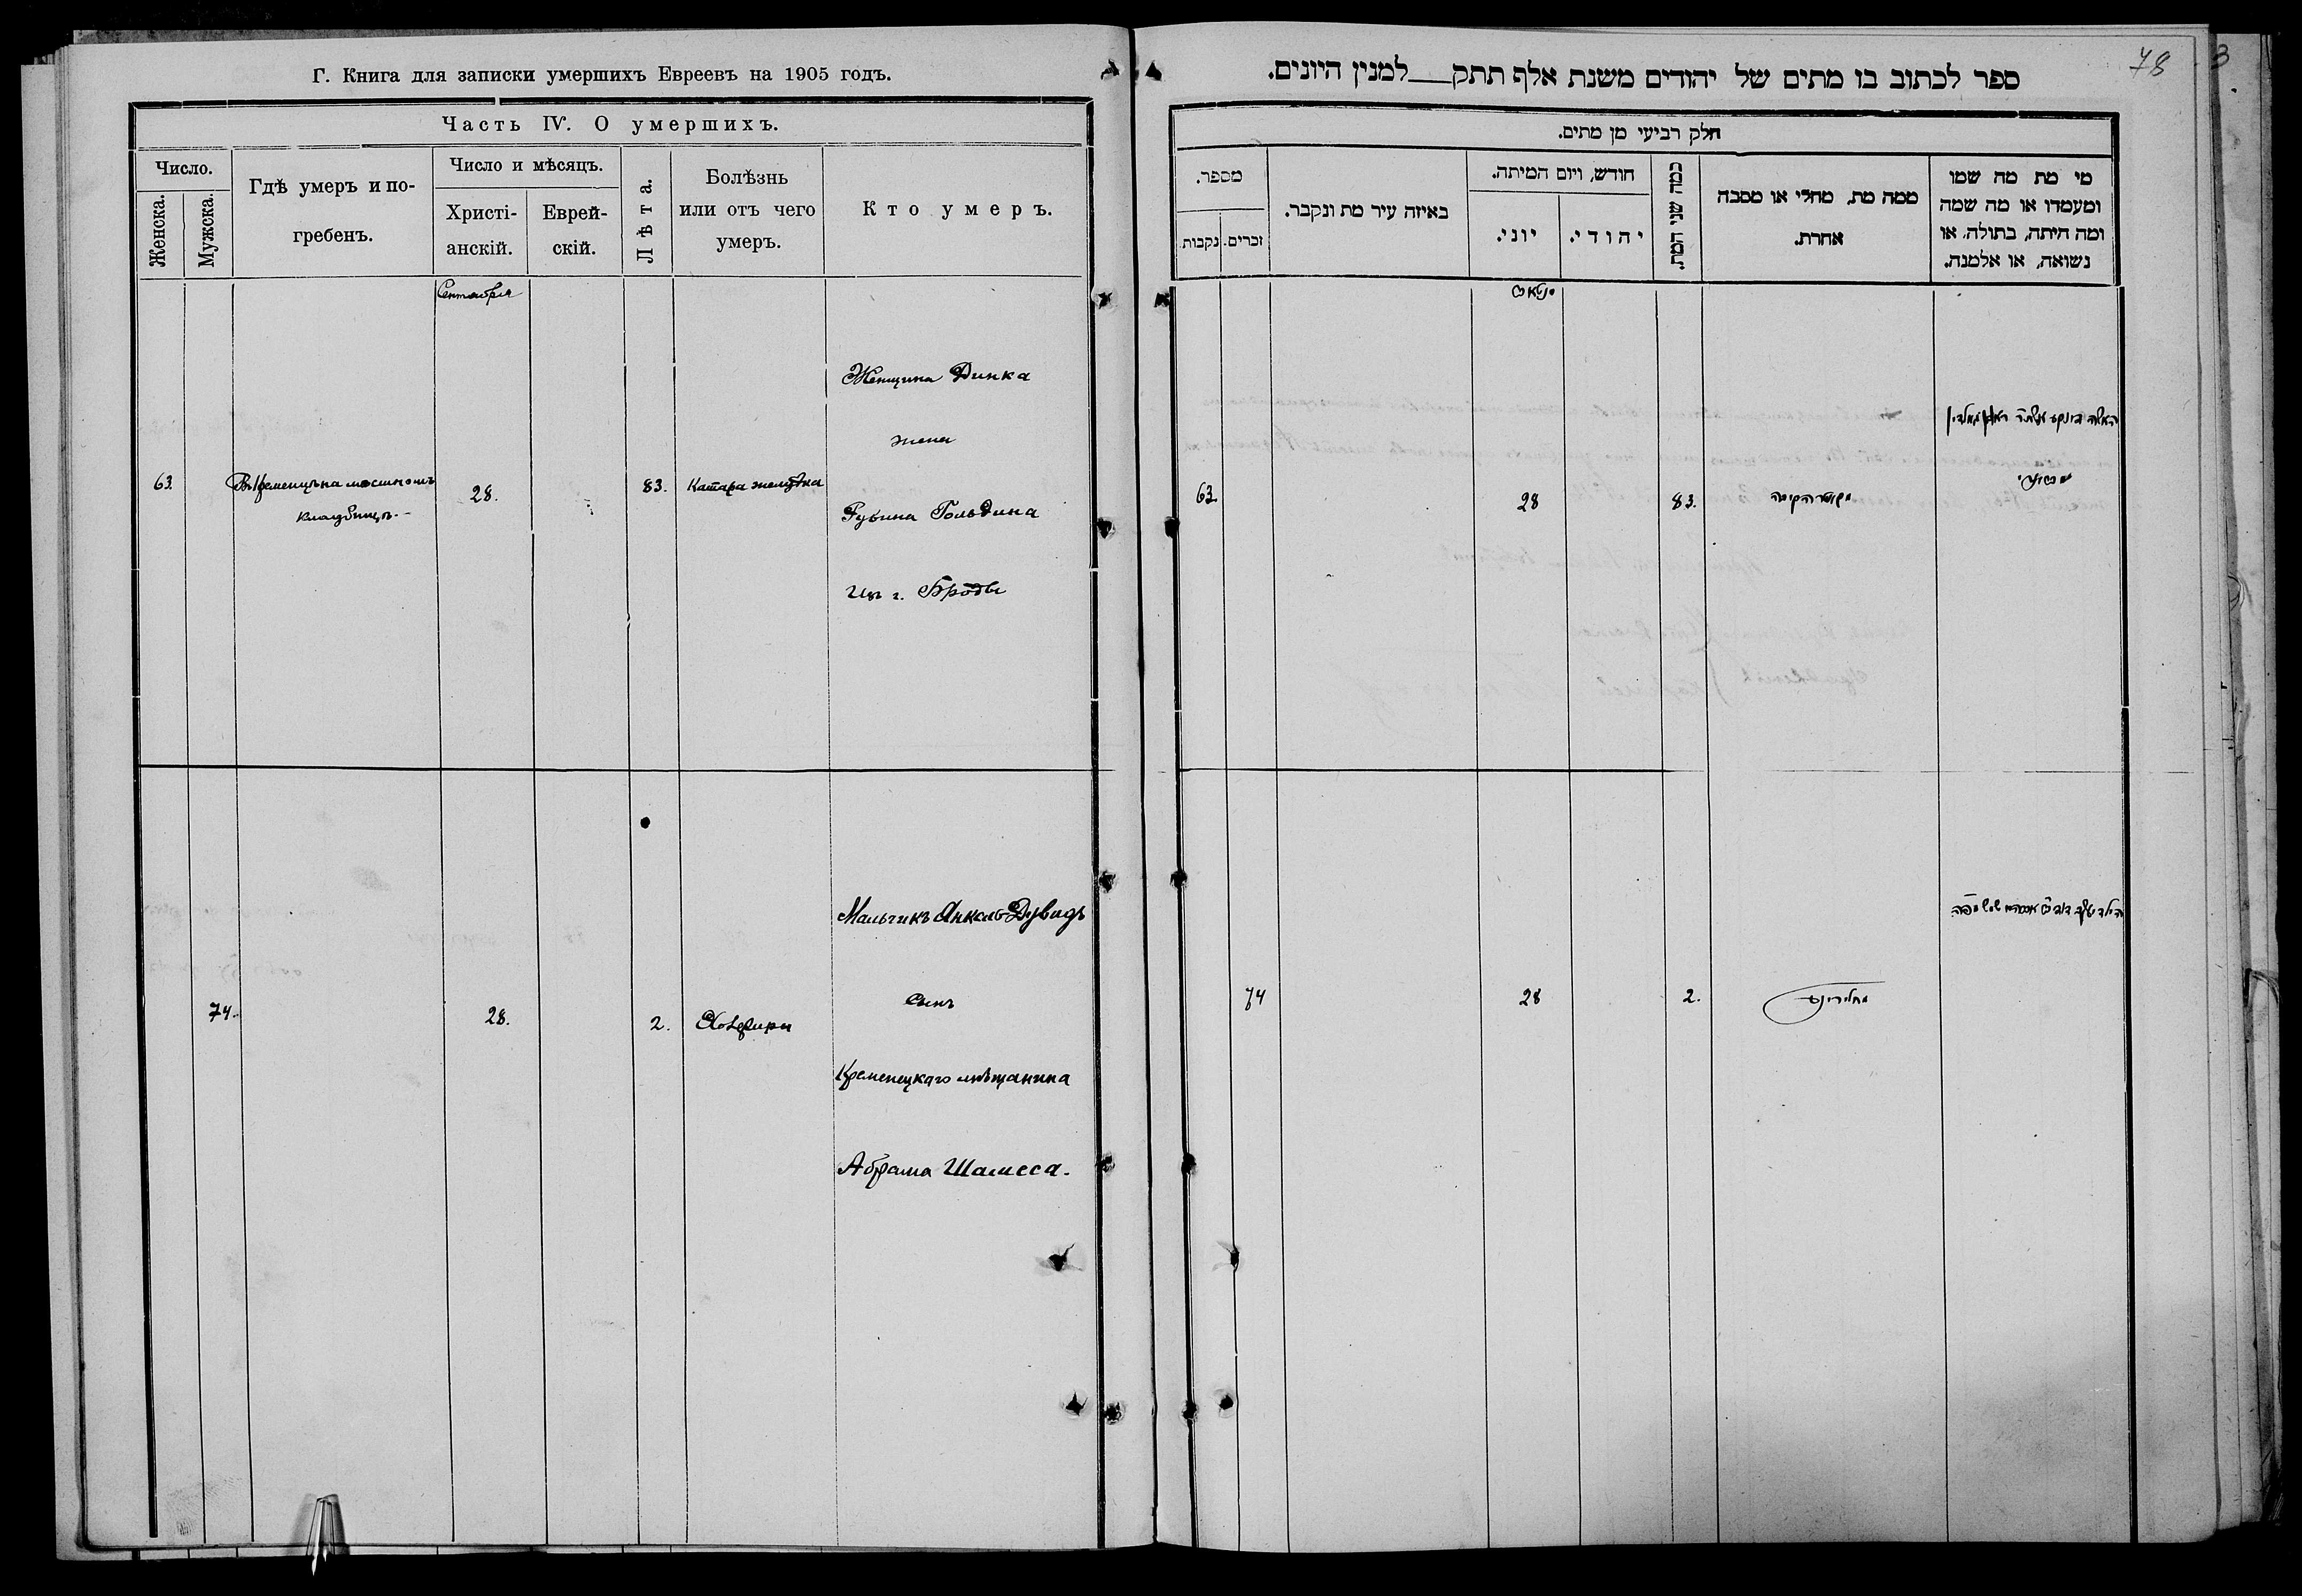 Г. Книга для записки умершихъ Евреевъ на 1905 годъ.
Часть IV. О умершихъ.
Число.
Женска.
Мужска.
Гдѣ умеръ и по-
гребенъ.
Число и мѣсяцъ.
Христі-
анскій.
Еврей-
скій.
Лѣта.
Болѣзнь
или отъ чего
умеръ.
Кто умеръ.
Сентября
63.
Въ Кременцѣ на мѣстномъ
кладбищѣ.
28.
83.
Катара желудка
Женщина Динка
жена
Рубина Гольдина
изъ г. Броды
74.
28.
2.
Мальчикъ Янкель Дувидъ
сынъ
Кременецкаго мѣщанина
Абрама Шамеса.
78
3
ספר לכתוב בו מתים של יהודים משנת אלף תתק למנין היונים.
חלק רביעי מן מתים.
מי מת מה שמו
ומעמדו או מה שמה
ומה היתה, בתולה, או
נשואה, או אלמנה.
ממה מת, מחלי או מסבה
אחרת.
כמה שני המת.
חודש, ויום המיתה.
יהודי.
יוני.
באיזה עיר מת ונקבר.
מספר.
זכרים.
נקבות
63.
28
83.
האשה דינקע אשת ר' ראובן גאלדין
74
28
2.